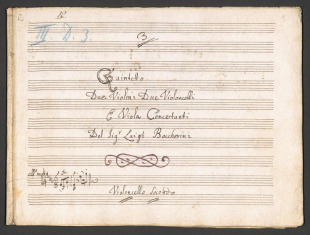 III. D. 3.
3
Quintetto
Due Violini Due Violoncelli
E Viola Concertanti
Del Sigr Luigi Boccherini
Violoncello Secondo